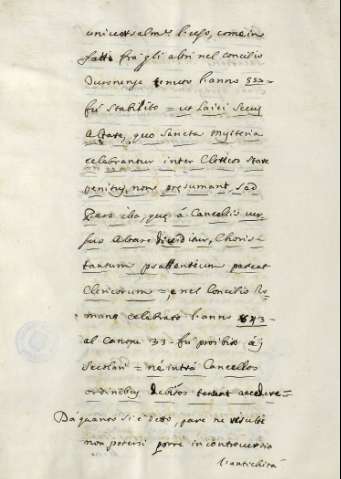 universalm.te luogo, come in
fatti fra gli altri nel concilio
Turonense tenuto l'anno 557=
fù stabilito = ut Laici secus
Altare, quo Sancta mysteria
celebrantur inter Clericos stare
penitus, non presumant, sed
pars illa, que à Cancellis ver
sus Altare dividitur, Choris =
tantum psallentium pateat
Clericorum =, e nel Concilio Ro
mano celebrato l'anno
al Canone 33. fù proibito à i
Secolari = nè intrà Cancellos
ordinibus debitos accedere=
Dà quanto si è detto, pare ne risulti
non potersi porre in controversia
l'antichità